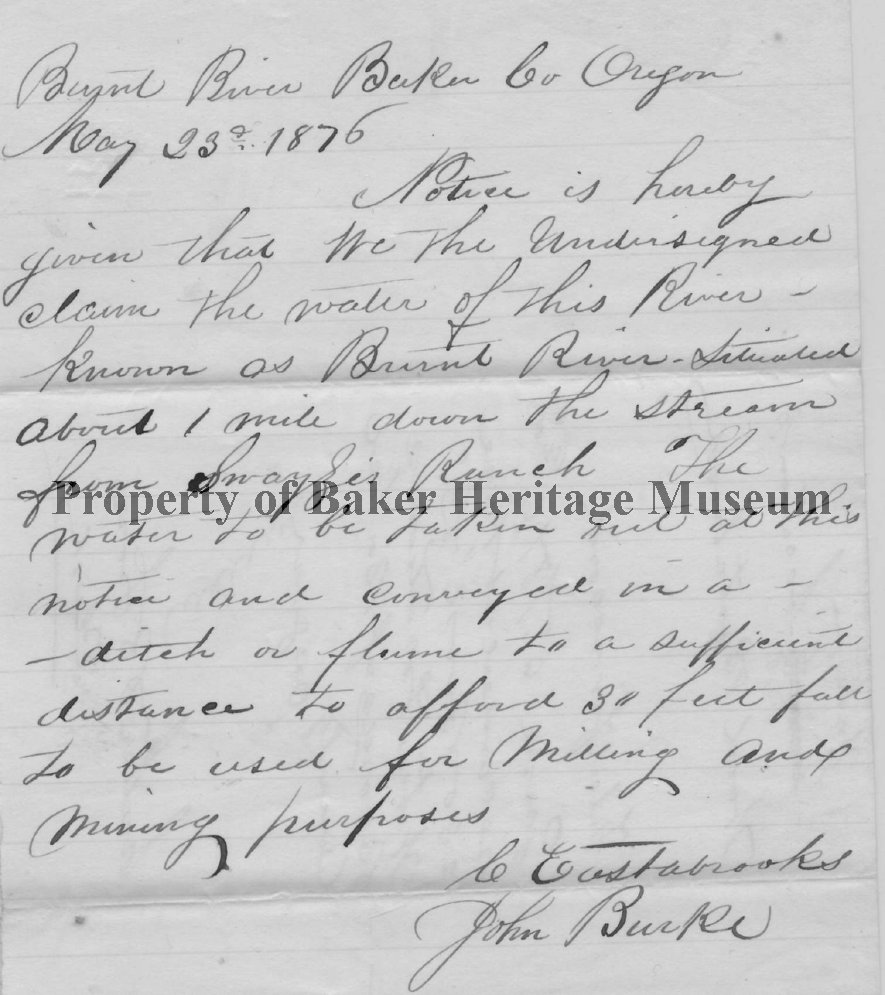 Burnt River Baker Co Oregon
May 23d. 1876
Notice is hereby
given that We the Undersigned
claim the water of this River -
known as Burnt River - Situated
about 1 mile down the stream
from Swayzies Ranch The
Property of Baker Heritage Museum
water to be taken out at this
notice and conveyed in a -
- ditch or flume to a sufficient
distance to afford 3" feet fall
to be used for Milling and
Mining purposes
C Eastabrooks
John Burke